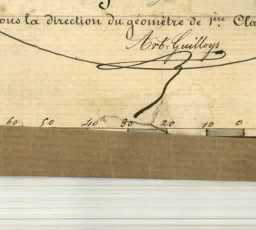 ous la direction du géomètre de 1ère Cla
Arb. Guilloys
60 50 40 30 20 10 0